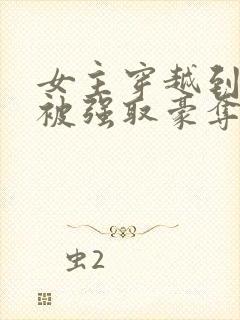 女主穿越到
被强取豪夺
虫2